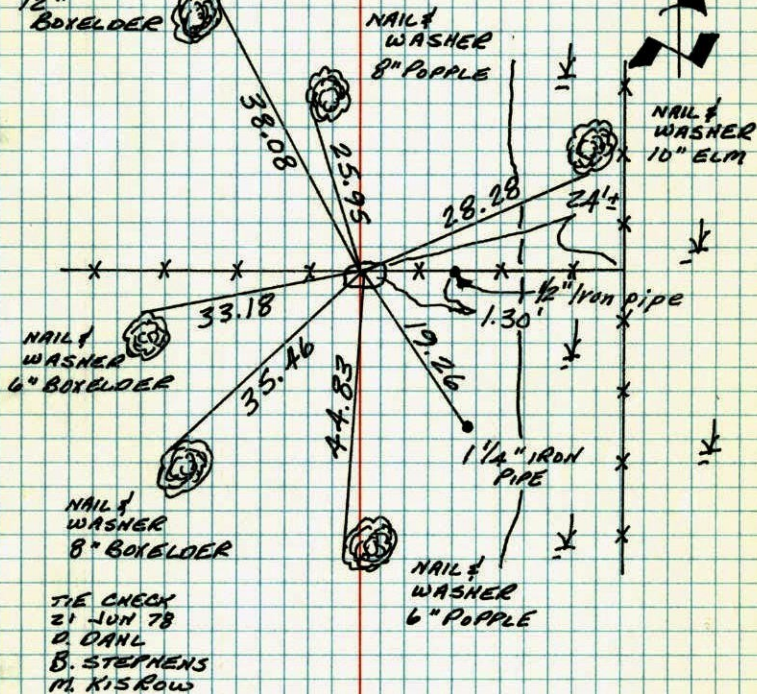 12"
BOXELDER
NAIL &
WASHER
8" POPPLE
NAIL &
WASHER
10" ELM
38.08
25.95
28.28
24'±
33.18
1/2" Iron pipe
1.30'
NAIL &
WASHER
6" BOXELDER
35.46
44.83
19.26
1 1/4" IRON
PIPE
NAIL &
WASHER
8" BOXELDER
NAIL &
WASHER
6" POPPLE
TIE CHECK
21 JUN 78
D. DAHL
B. STEPHENS
M. KISROW